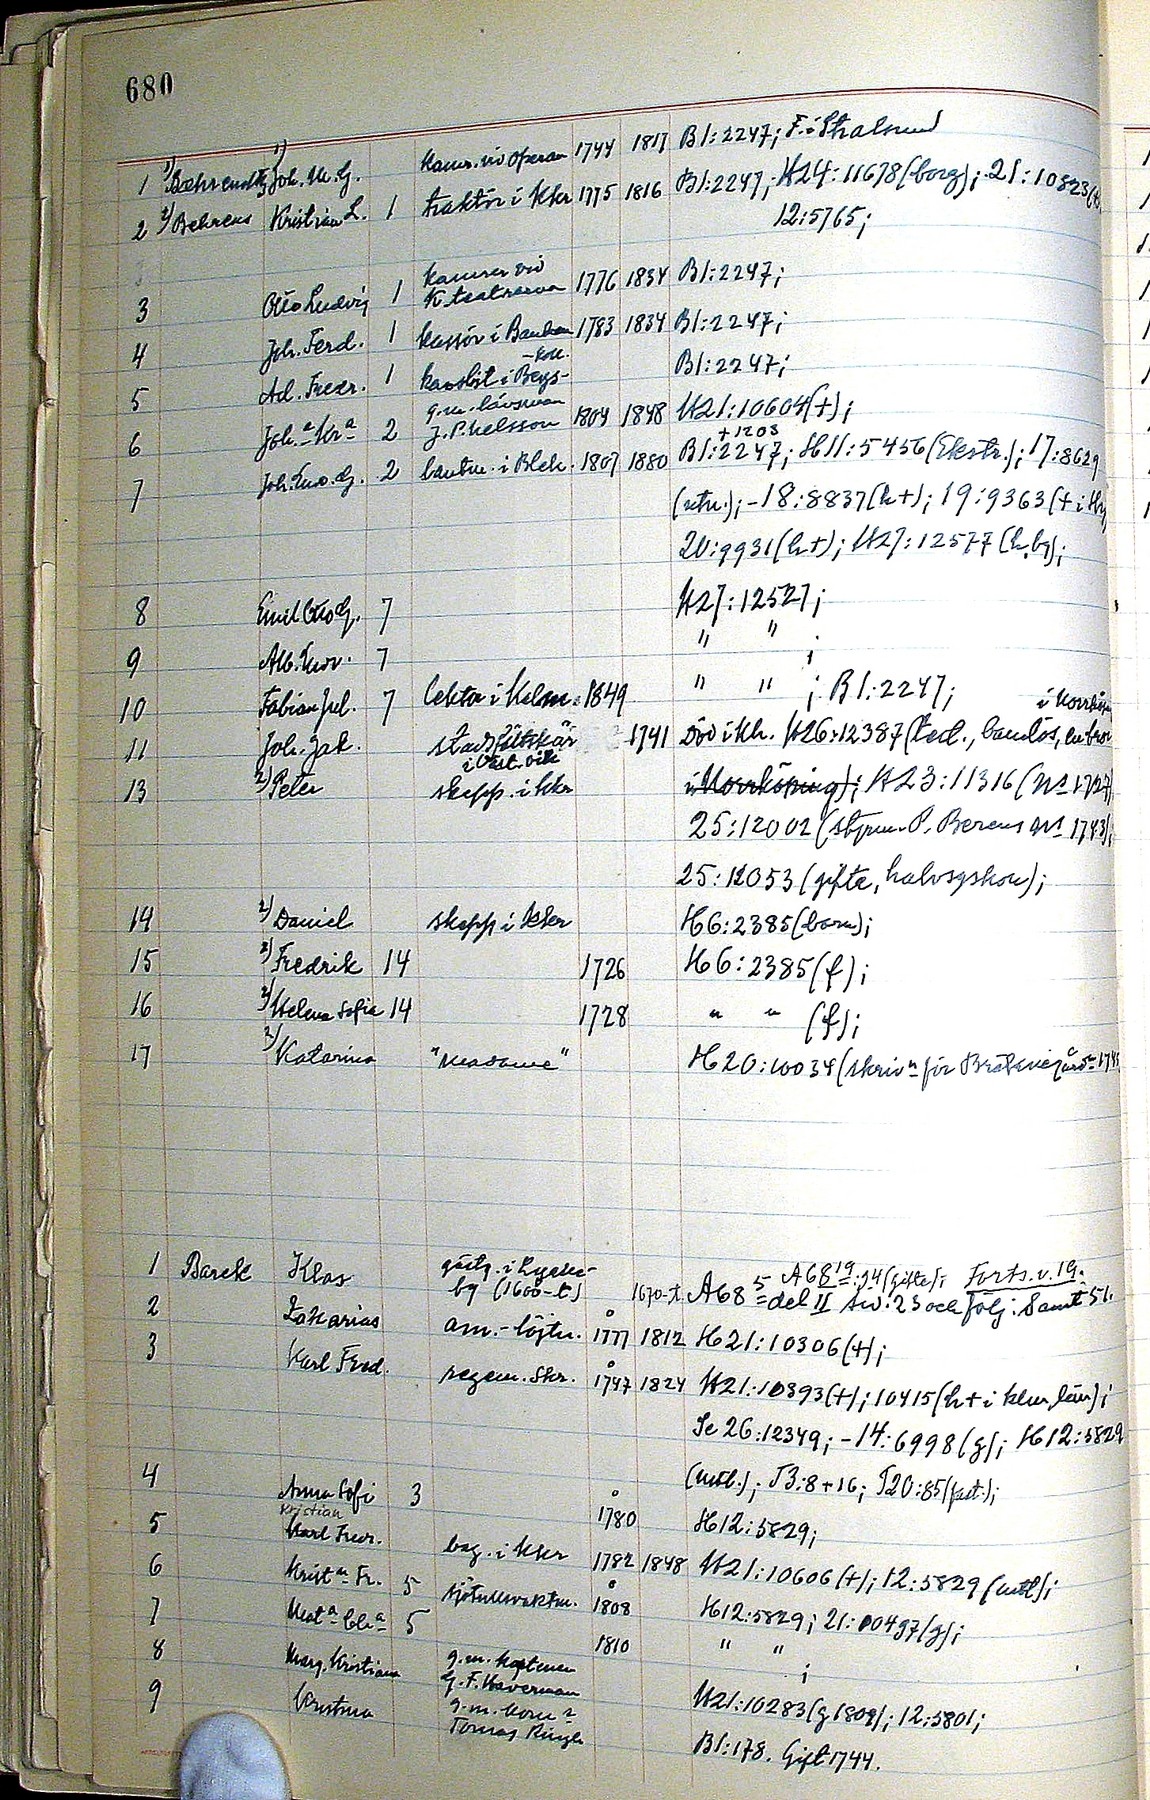 680
1 1) Joh. M. G. kamr. vid operan 1744 1817 B1:2247; F. i Stralsund
2 2) Behrens Kristian L. 1 traktör i kkr 1775 1816 B1:2247; H24:11678 (borg); 21:10823
12:5765;
3 Otto Ludvig 1 kamrer vid K. teatrarna 1776 1834 B1:2247;
4 Joh. Ferd. 1 kassör i Banken 1783 1834 B1:2247;
5 Ad. Fredr. 1 i Bergs-koll. B1:2247;
6 Joh.a Kr.a 2 g.m. länsman J.P. Nelsson 1804 1848 H21:10604 (+);
7 Joh. Gust. G. 2 lantm. i Blek. 1807 1880 B1:2247; +1203 H11:5456 (Ekstr.); 17:8629
-18:8837 (h+); 19:9363 (+ i
20:9931 (h+); H27:12577 (h, bg);
8 Emil Otto G. 7 H27:12527;
9 Alb. Gust. 7 " " ;
10 Fabian Jul. 7 lektor i Kalm. 1849 " " ; B1:2247;
11 Joh. Jak. stadsfältskär i Västervik 1741 Död i kh. H26:12387 (Ped., barnlös, en bror i Norrköpin
13 2) Peter skepp. i kkr i Norrköping); H23:11316 (Nº 1727)
25:12002 (styrm. P. Berens Nº 1743);
25:12053 (gifte, halvsyskon);
14 2) Daniel skepp i kkr H6:2385 (barn);
15 2) Fredrik 14 1726 H6:2385 (f);
16 2) Helena Sofia 14 1728 " " (f);
17 2) Katarina "Madame" H20:10034 (skrivn för
1 Barck Klas gästg. i Lyckeby (1600-t) 1670-t. A68 5 = del II sid. 23 och följ. Samt 51. A68 19:94 (gifte); Forts. v. 19.
2 Zakarias am.-löjtn. 1777 1812 H21:10306 (+);
3 Karl Fred. regem. skr. 1747 1824 H21:10393 (+); 10415 (h+ i klm län);
Se 26:12349; -14:6998 (g); H12:5829
J3:8+16; J20:85 (fast.);
4 Anna Sofi 3 1780 H12:5829;
5 Kristian Karl Fredr. bag. i kkr 1782 1848 H21:10606 (+); 12:5829
6 Krist.n Fr. 5 sjötullsvaktm. 1808 H12:5829; 21:10497 (g);
7 5 1810 " " ;
8 Marg. Kristiana g.m. kaptenen G.F. Haverman H21:10283 (g 1809); 12:5801;
9 Kristina g.m. Tomas B1:178. Gift 1744.